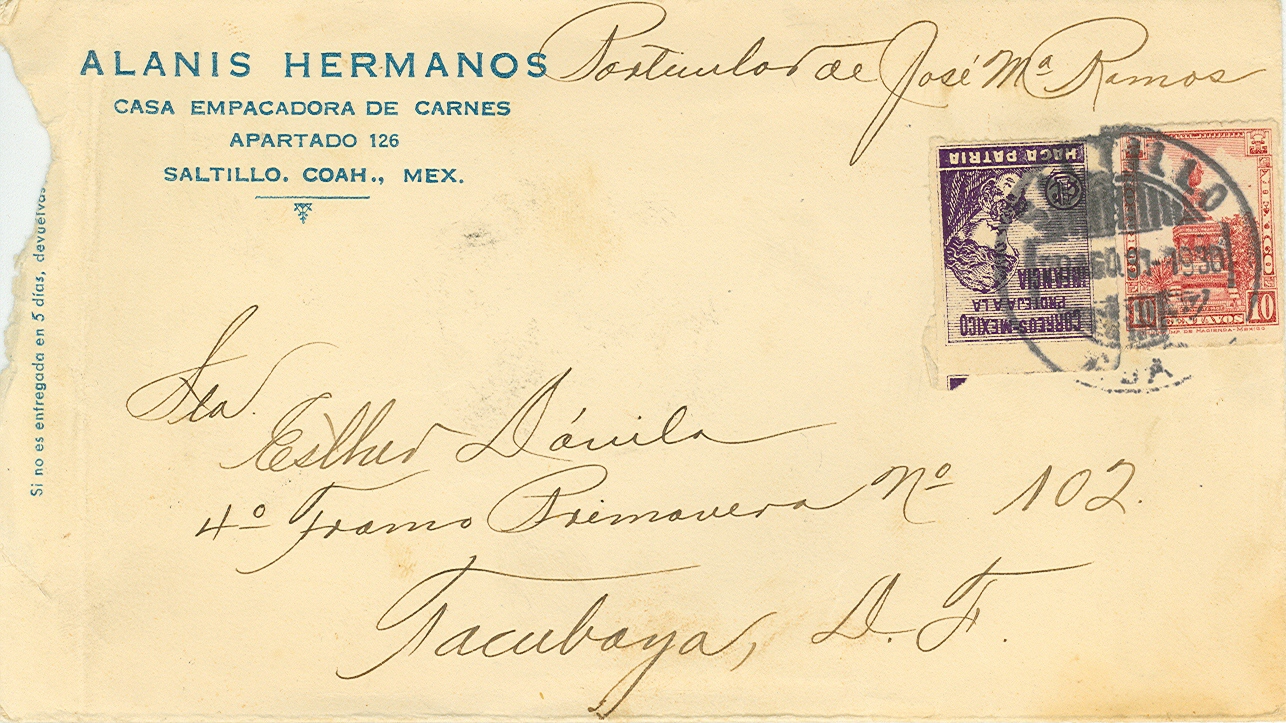 ALANIS HERMANOS
CASA EMPACADORA DE CARNES
APARTADO 126
SALTILLO. COAH., MEX.
Particular de José Mª Ramos
Si no es entregada en 5 días, devuelvas
HAGA PATRIA
CORREOS-MEXICO
PROTEJA A LA
INFANCIA
MEXICO
10
CENTAVOS
Sta.
Esther Dávila
4º Tramo Primavera Nº 102.
Tacubaya, D. F.